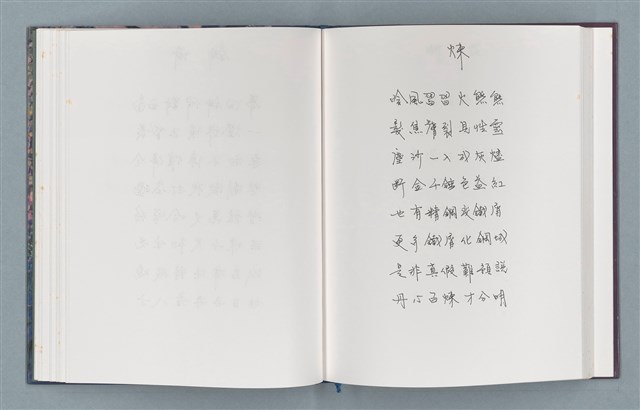 煉
冷風習習火熊熊
裂焦膚裂具性靈
塵沙一入成灰燼
斷金千蝕色益紅
也有精鋼成鐵屑
更多鐵屑化鋼城
是非真假難預說
丹心百煉才分明